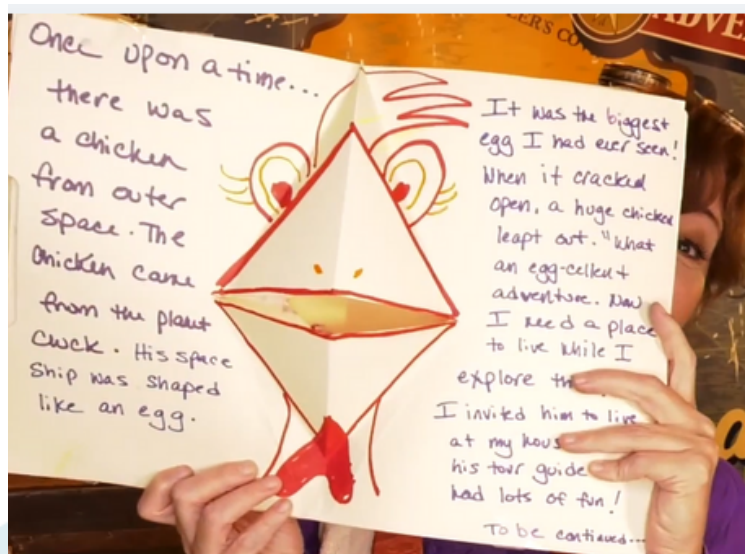 Once upon a time...
there was
a chicken
from outer
space. The
chicken came
from the planet
cluck. His space
ship was shaped
like an egg.
It was the biggest
egg I had ever seen!
When it cracked
open, a huge chicken
leapt out. "What
an egg-cellent
adventure. Now
I need a place
to live while I
explore
I invited him to live
at my
his tour guide
had lots of fun!
To be continued...